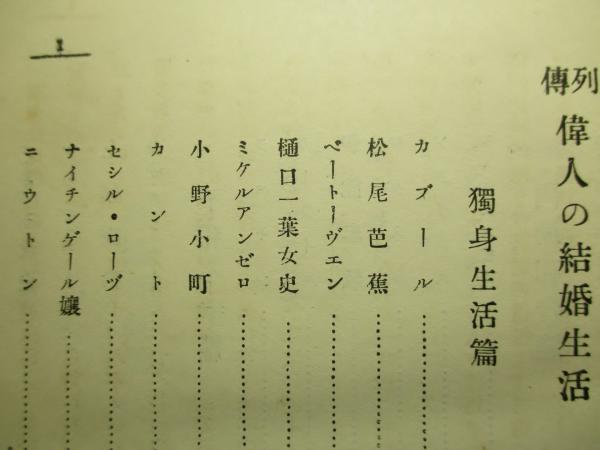 列傳
偉人の結婚生活
獨身生活篇
カブール……………
松尾芭蕉……………
ベートーヴエン……………
樋口一葉女史……………
ミケルアンゼロ……………
小野小町……………
カント……………
セシル・ローヅ……………
ナイチンゲール孃……………
ニウトン……………
1